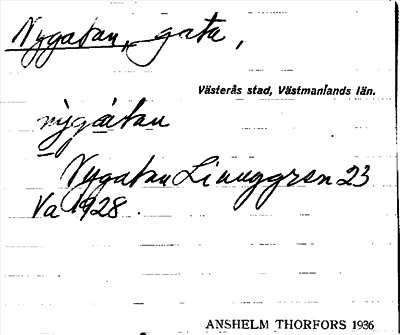 Nygatan, gata,
Västerås stad, Västmanlands län.
nỳgàtan
Nygatan Linnggren 23
Va 1928.
ANSHELM THORFORS 1936